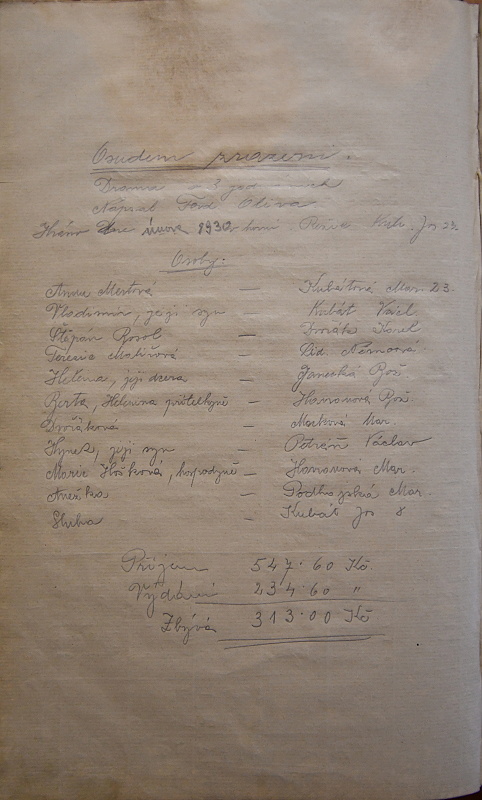 Osudem
Drama
Napsal Ferd. Oliva
Hráno dne února 1930 Jos 23.
Osoby:
Anna Mertová — Kubátová Mar. 23.
Vladimír, její syn — Kubát Václ.
Štěpán Rosol — Dvořák Karel
Terezie Malířová — Lid. Němcová
Helena, její dcera — Janecká Rož.
Berta, Helenina přítelkyně — Hamanová Rož.
Dvořáková — Marková Mar.
Hynek, její syn — Petráň Václav
Marie Hošková, hospodyně — Hamanová Mar.
Anežka — Podhajská Mar.
Sluha — Kubát Jos 8
Příjem 547·60 Kč.
Vydání 234·60 "
Zbývá 313·00 Kč